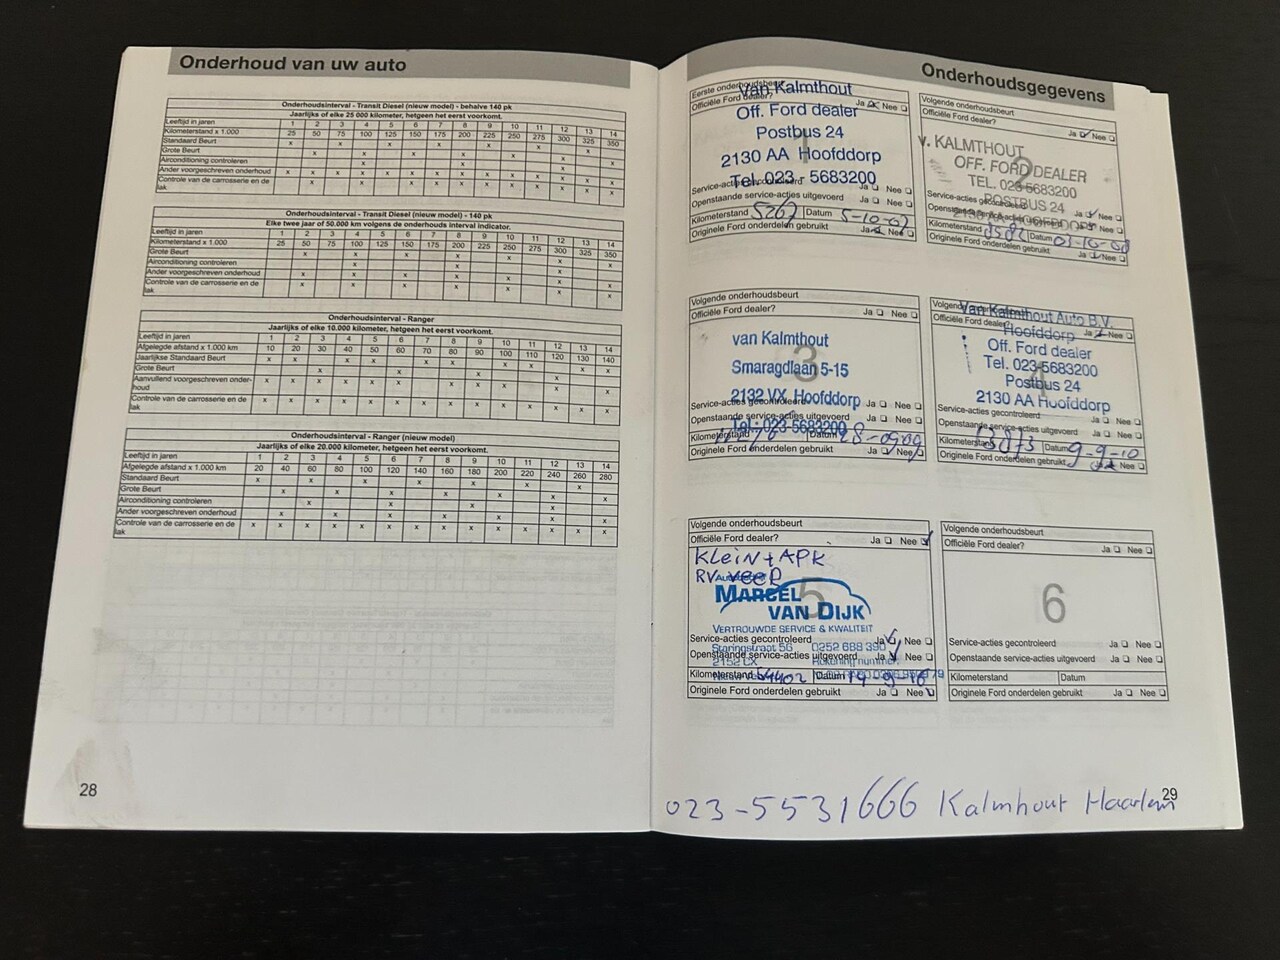 Onderhoud van uw auto
Onderhoudsinterval - Transit Diesel (nieuw model) - behalve 140 pk
Jaarlijks of elke 25 000 kilometer, hetgeen het eerst voorkomt.
Leeftijd in jaren 1 2 3 4 5 6 7 8 9 10 11 12 13 14
Kilometerstand x 1.000 25 50 75 100 125 150 175 200 225 250 275 300 325 350
Standaard Beurt x x x x x x x
Grote Beurt x x x x x x x
Airconditioning controleren x x x
Ander voorgeschreven onderhoud x x x x x x x x x x x x x x
Controle van de carrosserie en de lak x x x x x x x
Onderhoudsinterval - Transit Diesel (nieuw model) - 140 pk
Elke twee jaar of 50.000 km volgens de onderhouds interval indicator.
Leeftijd in jaren 1 2 3 4 5 6 7 8 9 10 11 12 13 14
Kilometerstand x 1.000 25 50 75 100 125 150 175 200 225 250 275 300 325 350
Grote Beurt x x x x x x x
Airconditioning controleren x x x
Ander voorgeschreven onderhoud x x x x x x x
Controle van de carrosserie en de lak x x x x x x x
Onderhoudsinterval - Ranger
Jaarlijks of elke 10.000 kilometer, hetgeen het eerst voorkomt.
Leeftijd in jaren 1 2 3 4 5 6 7 8 9 10 11 12 13 14
Afgelegde afstand x 1.000 km 10 20 30 40 50 60 70 80 90 100 110 120 130 140
Jaarlijkse Standaard Beurt x x x x x x x x x x
Grote Beurt x x x x
Aanvullend voorgeschreven onder-
houd
Controle van de carrosserie en de lak x x x x x x x x x x x x x x
Onderhoudsinterval - Ranger (nieuw model)
Jaarlijks of elke 20.000 kilometer, hetgeen het eerst voorkomt.
Leeftijd in jaren 1 2 3 4 5 6 7 8 9 10 11 12 13 14
Afgelegde afstand x 1.000 km 20 40 60 80 100 120 140 160 180 200 220 240 260 280
Standaard Beurt x x x x x x x
Grote Beurt x x x x x x x
Airconditioning controleren x x x x
Ander voorgeschreven onderhoud x x x x x x x
Controle van de carrosserie en de lak x x x x x x x x x x x x x x
28
Onderhoudsgegevens
Eerste onderhoudsbeurt
Officiële Ford dealer? Ja Nee
van Kalmthout
Off. Ford dealer
Postbus 24
2130 AA Hoofddorp
Tel. 023 - 5683200
1
Service-acties gecontroleerd Ja Nee
Openstaande service-acties uitgevoerd Ja Nee
Kilometerstand 5267 Datum 5-10-07
Originele Ford onderdelen gebruikt Ja Nee
Volgende onderhoudsbeurt
Officiële Ford dealer? Ja Nee
v. KALMTHOUT
OFF. FORD DEALER
TEL. 023-5683200
POSTBUS 24
2130 AA HOOFDDORP
2
Service-acties gecontroleerd Ja Nee
Openstaande service-acties uitgevoerd Nee
Kilometerstand Datum
Originele Ford onderdelen gebruikt Ja Nee
Volgende onderhoudsbeurt
Officiële Ford dealer? Ja Nee
van Kalmthout
Smaragdlaan 5-15
2132 VX Hoofddorp
Tel.: 023-5683200
3
Service-acties gecontroleerd Ja Nee
Openstaande service-acties uitgevoerd Ja Nee
Kilometerstand Datum 28-09-09
Originele Ford onderdelen gebruikt Ja Nee
Volgende onderhoudsbeurt
Officiële Ford dealer? Ja Nee
Van Kalmthout Auto B.V.
Hoofddorp
Off. Ford dealer
Tel. 023-5683200
Postbus 24
2130 AA Hoofddorp
4
Service-acties gecontroleerd Ja Nee
Openstaande service-acties uitgevoerd Ja Nee
Kilometerstand 13073 Datum 9-9-10
Originele Ford onderdelen gebruikt Ja Nee
Volgende onderhoudsbeurt
Officiële Ford dealer? Ja Nee
Klein + APK
RV veer
MARCEL
VAN DIJK
VERTROUWDE SERVICE & KWALITEIT
5
Service-acties gecontroleerd Ja Nee
Staringstraat 56 0252 688 390
Openstaande service-acties uitgevoerd Ja Nee
2152 CX Rekening nummer:
Kilometerstand 54402 Datum 14-9-16
Originele Ford onderdelen gebruikt Ja Nee
Volgende onderhoudsbeurt
Officiële Ford dealer? Ja Nee
6
Service-acties gecontroleerd Ja Nee
Openstaande service-acties uitgevoerd Ja Nee
Kilometerstand Datum
Originele Ford onderdelen gebruikt Ja Nee
29
023-5531666 Kalmhout Haarlem